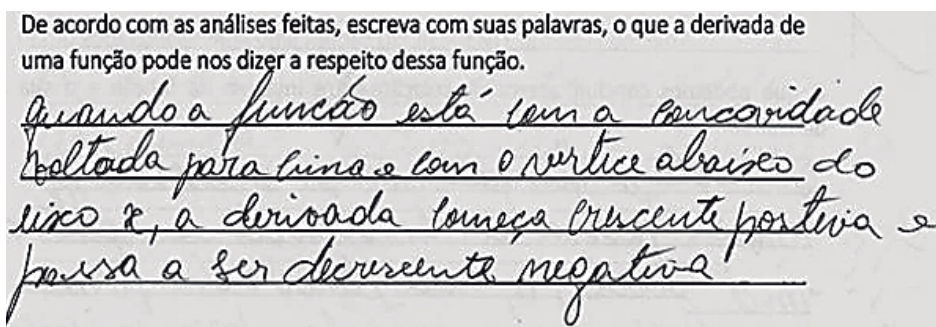 De acordo com as análises feitas, escreva com suas palavras, o que a derivada de
uma função pode nos dizer a respeito dessa função.
quando a função está com a concavidade
voltada para cima e com o vertice abaixo do
eixo x, a derivada começa crescente positiva e
passa a ser decrescente negativa